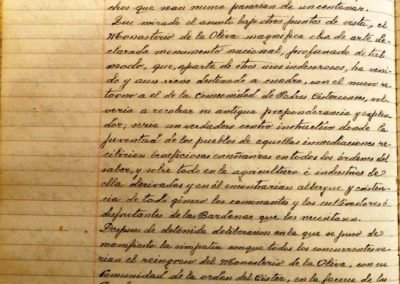 chos que nean nunca pararian de un centenar.
Que mirado el asunto bajo otros puntos de vista, el
Monasterio de la Oliva magnifica obra de arte de-
clarada monumento nacional, profanado de tal
modo, que, aparte de otros usos indecorosos, ha veni-
do y aun viene destinado a cuadra, con el nuevo re-
torno a el de la Comunidad de Padres Cistercenses, vol-
veria a recobrar su antigua preponderancia y esplen-
dor, seria un verdadero centro instructivo donde la
juventud de los pueblos de aquellas inmediaciones re-
cibirian beneficiosas enseñanzas en todos los órdenes del
saber, y sobre todo en la agricultura é industrias de
ella derivadas y en él encontrarian albergue y asisten-
cia de todo género los caminantes y los cultivadores é
disfrutantes de las Bardenas que los necesitaran.
Despues de detenida deliberacion en la que se puso de
manifiesto la simpatia con que todos los concurrentes ve-
rian el reingreso del Monasterio de la Oliva, con su
Comunidad de la orden del Cister, en la